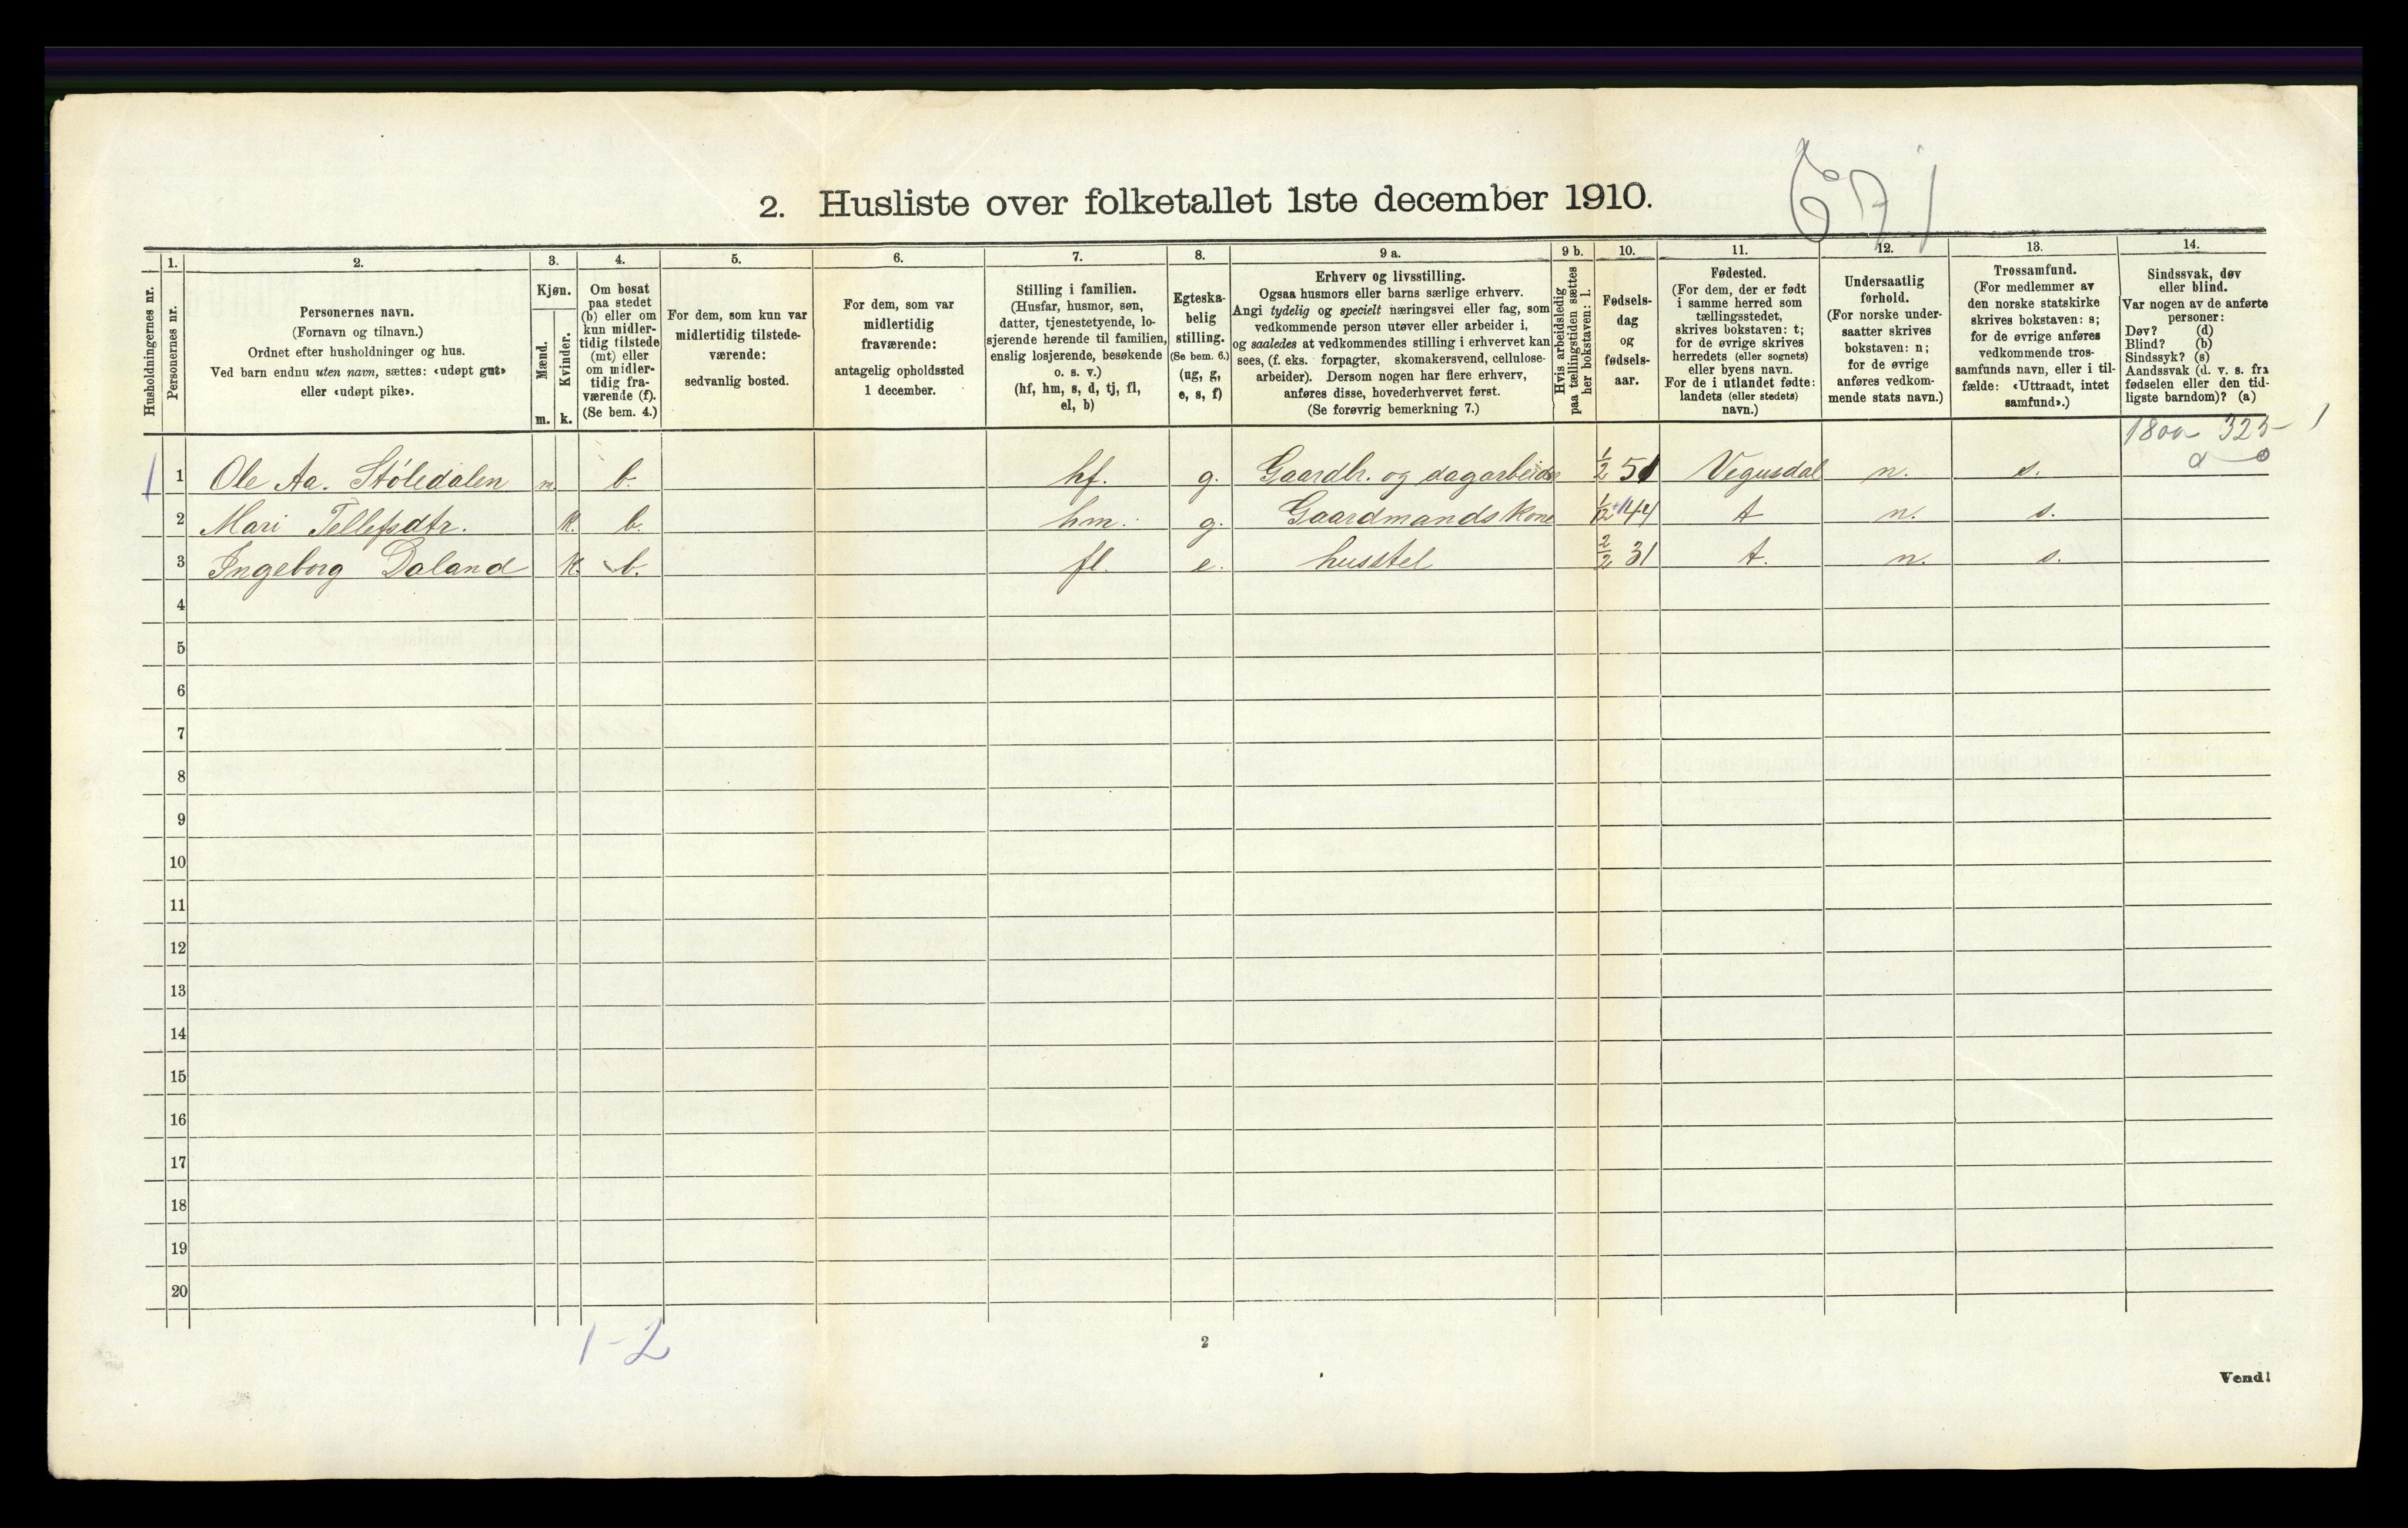 2. Husliste over folketallet 1ste december 1910.
Husholdningernes nr.
1. Personernes nr.
2. Personernes navn.
(Fornavn og tilnavn.)
Ordnet efter husholdninger og hus.
Ved barn endnu uten navn, sættes: «udøpt gut»
eller «udøpt pike».
3. Kjøn.
Mænd. m.
Kvinder. k.
4. Om bosat
paa stedet
(b) eller om
kun midler-
tidig tilstede
(mt) eller
om midler-
tidig fra-
værende (f).
(Se bem. 4.)
5. For dem, som kun var
midlertidig tilstede-
værende:
sedvanlig bosted.
6. For dem, som var
midlertidig
fraværende:
antagelig opholdssted
1 december.
7. Stilling i familien.
(Husfar, husmor, søn,
datter, tjenestetyende, lo-
sjerende hørende til familien,
enslig losjerende, besøkende
o. s. v.)
(hf, hm, s, d, tj, fl,
el, b)
8. Egteska-
belig
stilling.
(Se bem. 6.)
(ug, g,
e, s, f)
9 a. Erhverv og livsstilling.
Ogsaa husmors eller barns særlige erhverv.
Angi tydelig og specielt næringsvei eller fag, som
vedkommende person utøver eller arbeider i,
og saaledes at vedkommendes stilling i erhvervet kan
sees, (f. eks. forpagter, skomakersvend, cellulose-
arbeider). Dersom nogen har flere erhverv,
anføres disse, hovederhvervet først.
(Se forøvrig bemerkning 7.)
9 b. Hvis arbeidsledig
paa tællingstiden sættes
her bokstaven: l.
10. Fødsels-
dag
og
fødsels-
aar.
11. Fødested.
(For dem, der er født
i samme herred som
tællingsstedet,
skrives bokstaven: t;
for de øvrige skrives
herredets (eller sognets)
eller byens navn.
For de i utlandet fødte:
landets (eller stedets)
navn.)
12. Undersaatlig
forhold.
(For norske under-
saatter skrives
bokstaven: n;
for de øvrige
anføres vedkom-
mende stats navn.)
13. Trossamfund.
(For medlemmer av
den norske statskirke
skrives bokstaven: s;
for de øvrige anføres
vedkommende tros-
samfunds navn, eller i til-
fælde: «Uttraadt, intet
samfund».)
14. Sindssvak, døv
eller blind.
Var nogen av de anførte
personer:
Døv? (d)
Blind? (b)
Sindssyk? (s)
Aandssvak (d. v. s. fra
fødselen eller den tid-
ligste barndom)? (a)
1800 325- 1
1 1 Ole Aa. Støledalen m. b. hf. g. Gaardbr. og dagarbeider 1/2 51 Vegusdal n. s.
2 Mari Tellefsdtr. k. b. hm. g. Gaardmandskone 1/12 44 t n. s.
3 Ingeborg Daland k. b. fl. e. husstel 2/2 31 t. n. s.
4
5
6
7
8
9
10
11
12
13
14
15
16
17
18
19
20
1-2
2
Vend!